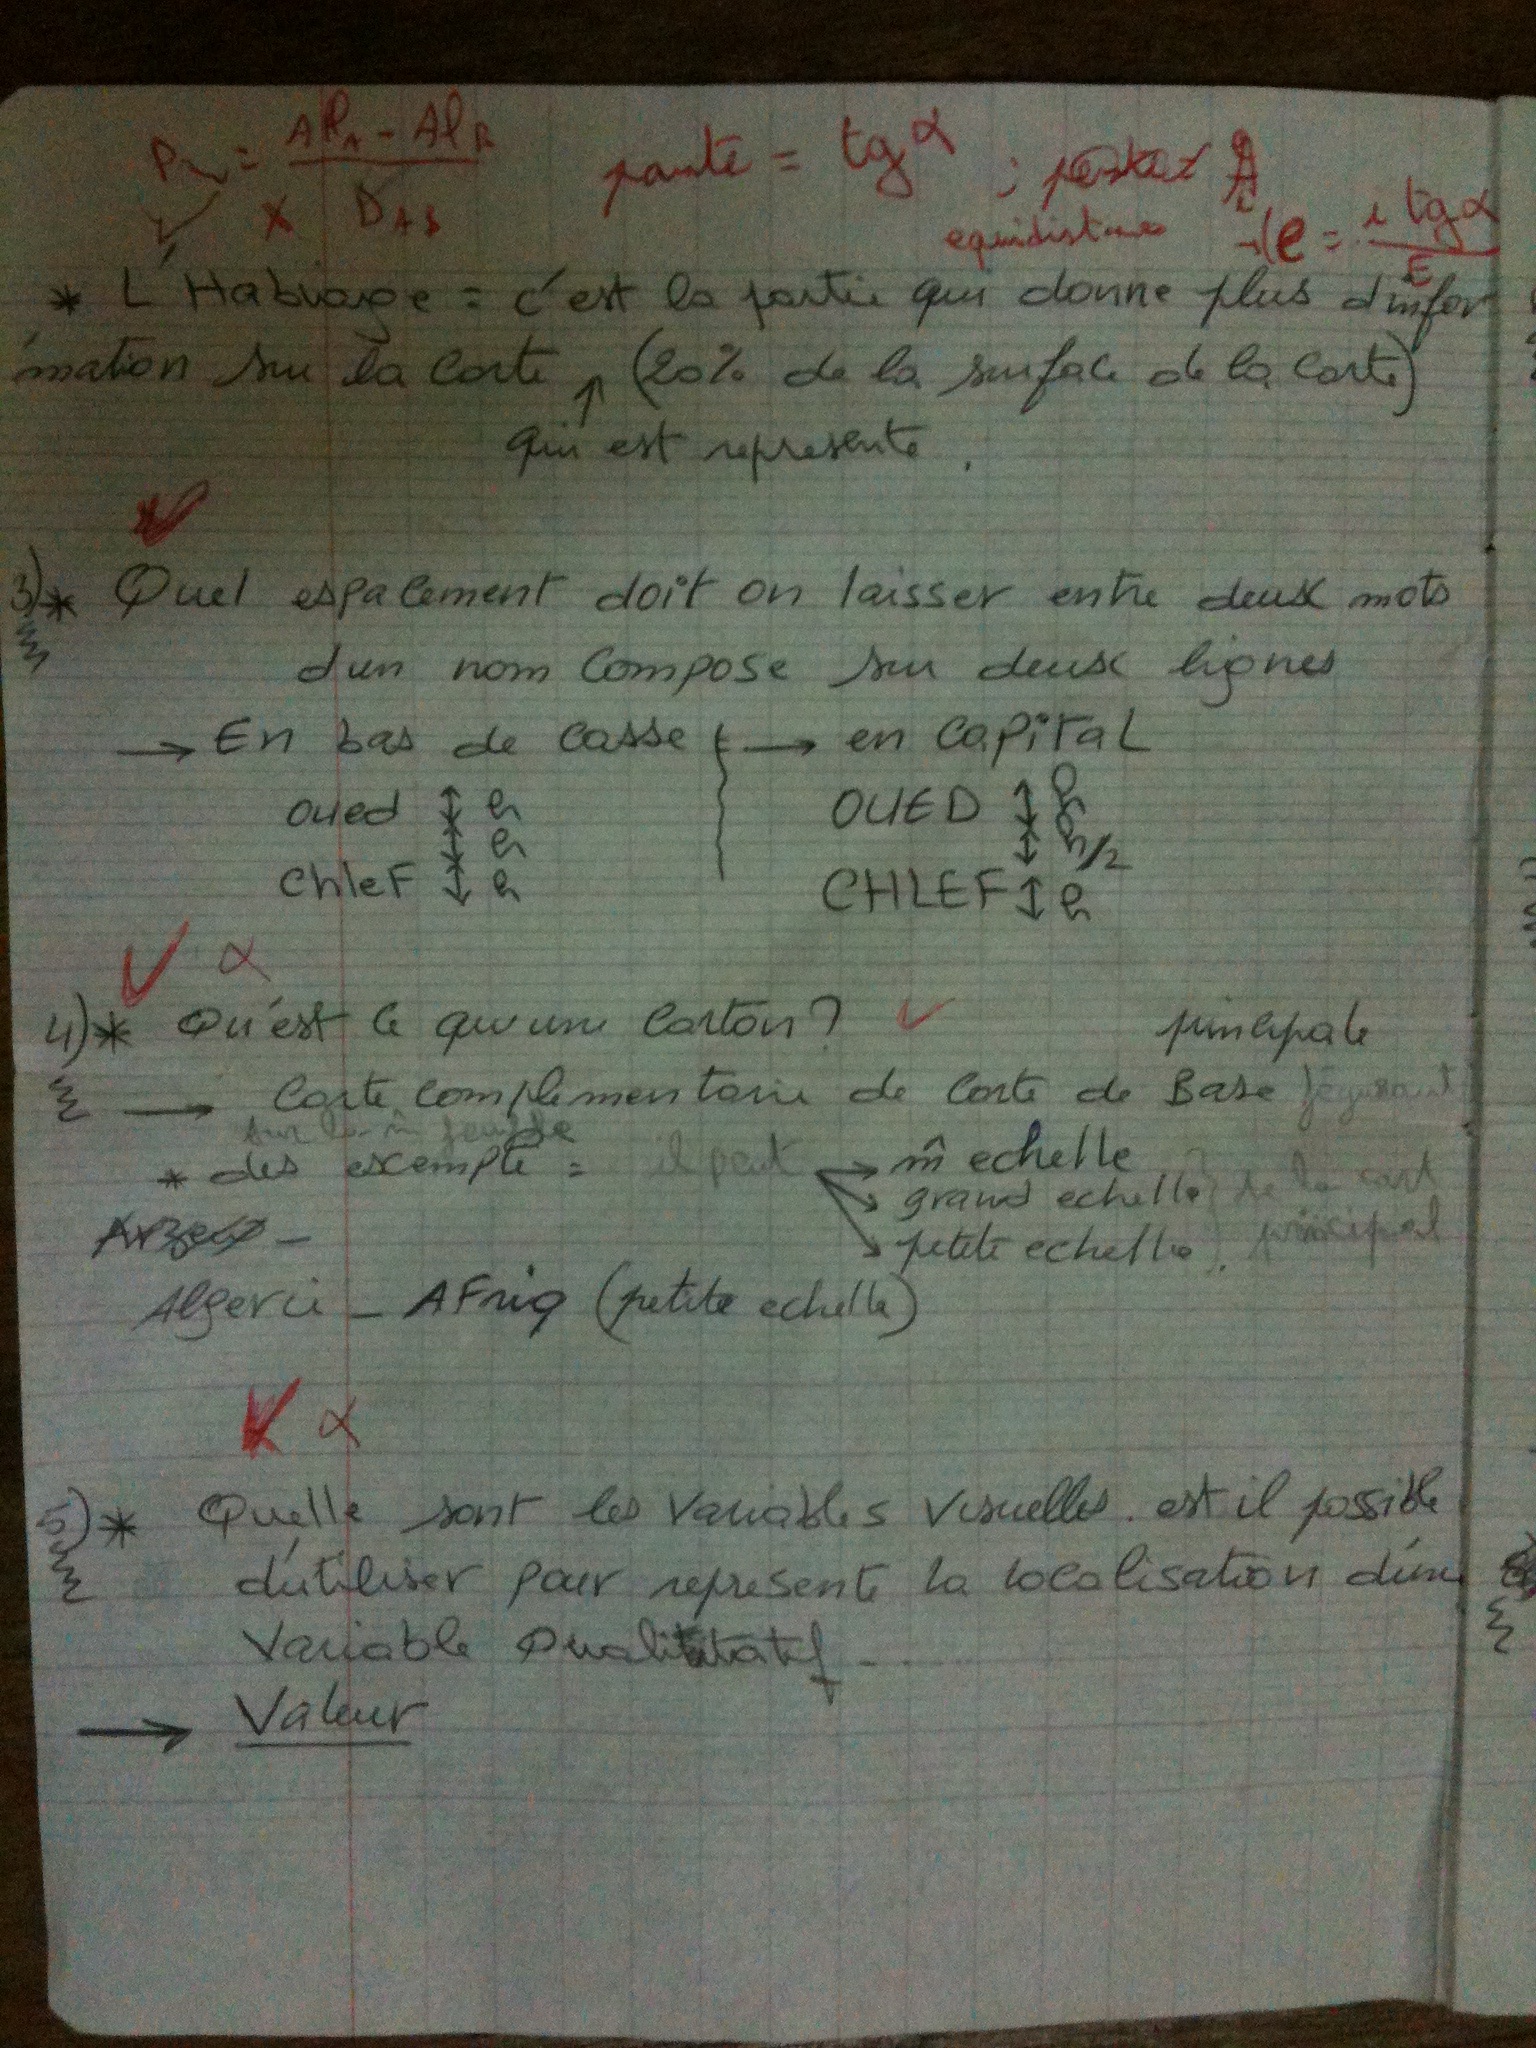 P = AlA - AlB / DAB
X
pante = tgα ;
equidistance → e = i tgα / E
* L'Habiage = c'est la partie qui donne plus d'infor
mation sur la carte (20% de la surface de la carte)
qui est represente.
3)* Quel espacement doit on laisser entre deux mots
d'un nom compose sur deux lignes
→ En bas de casse → en capitaL
oued ↕ h OUED ↕ h
↕ h ↕ h/2
chleF ↕ h CHLEF ↕ h
α
4)* Qu'est ce qu'une carton?
principale
→ Carte complementaire de carte de Base figurant
sur la m̂ feuille
* des exemple = il peut → m̂ echelle
grand echelle de la cart
petite echelle. principal
Arzew -
Algerie - AFriq (petite echelle)
α
5)* Quelle sont les variables visuelles. est il possible
d'utiliser pour represente la localisation d'une
Variable Qualitatif -
→ Valeur